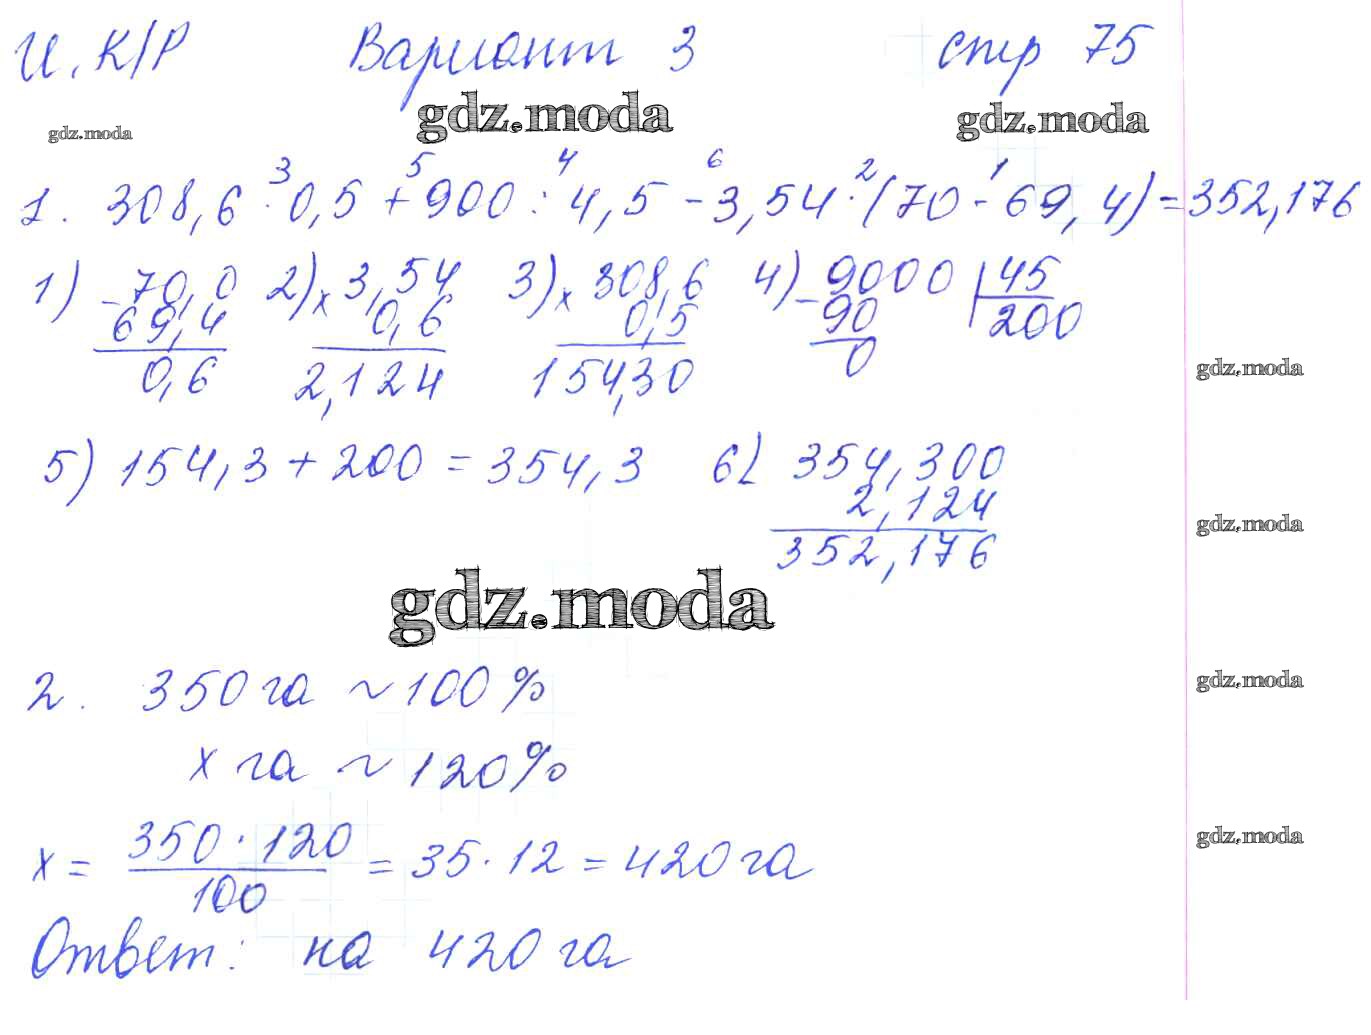 И. К/Р Вариант 3 стр 75
gdz.moda gdz.moda gdz.moda
3 5 4 6 2 1
1. 308,6 · 0,5 + 900 : 4,5 - 3,54 · (70 - 69,4) = 352,176
1) - 70,0 2) x 3,54 3) x 308,6 4) - 9000 | 45
69,4 0,6 0,5 90 200
0,6 2,124 154,30 0
gdz.moda
5) 154,3 + 200 = 354,3 6) 354,300
2,124
gdz.moda
352,176
gdz.moda
2. 350 га ~ 100 %
gdz.moda
x га ~ 120%
x = 350 · 120 / 100 = 35 · 12 = 420 га
gdz.moda
Ответ: на 420 га